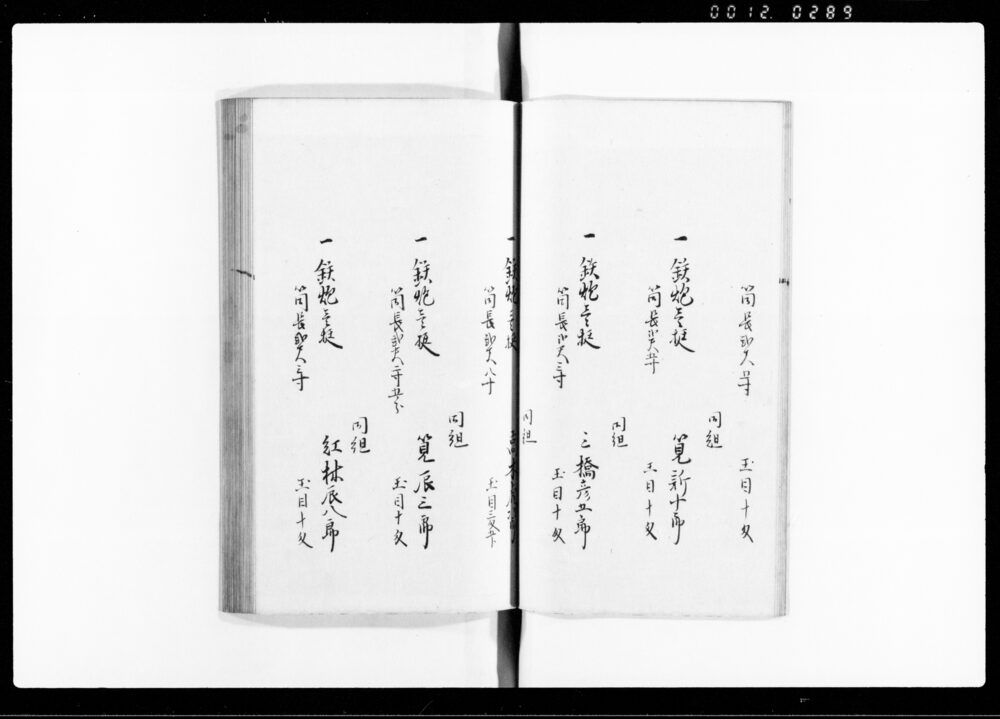 0012.0289
筒長弐尺五寸
玉目十匁
同組
一鉄炮壱挺
筧新十郎
筒長弐尺五寸
玉目十匁
同組
一鉄炮壱挺
三橋彦五郎
筒長弐尺三寸
玉目十匁
同組
一鉄炮壱挺
筒長弐尺八寸
玉目三匁五分
同組
一鉄炮壱挺
筧辰三郎
筒長弐尺三寸五分
玉目十匁
同組
一鉄炮壱挺
紅林辰八郎
筒長弐尺三寸
玉目十匁